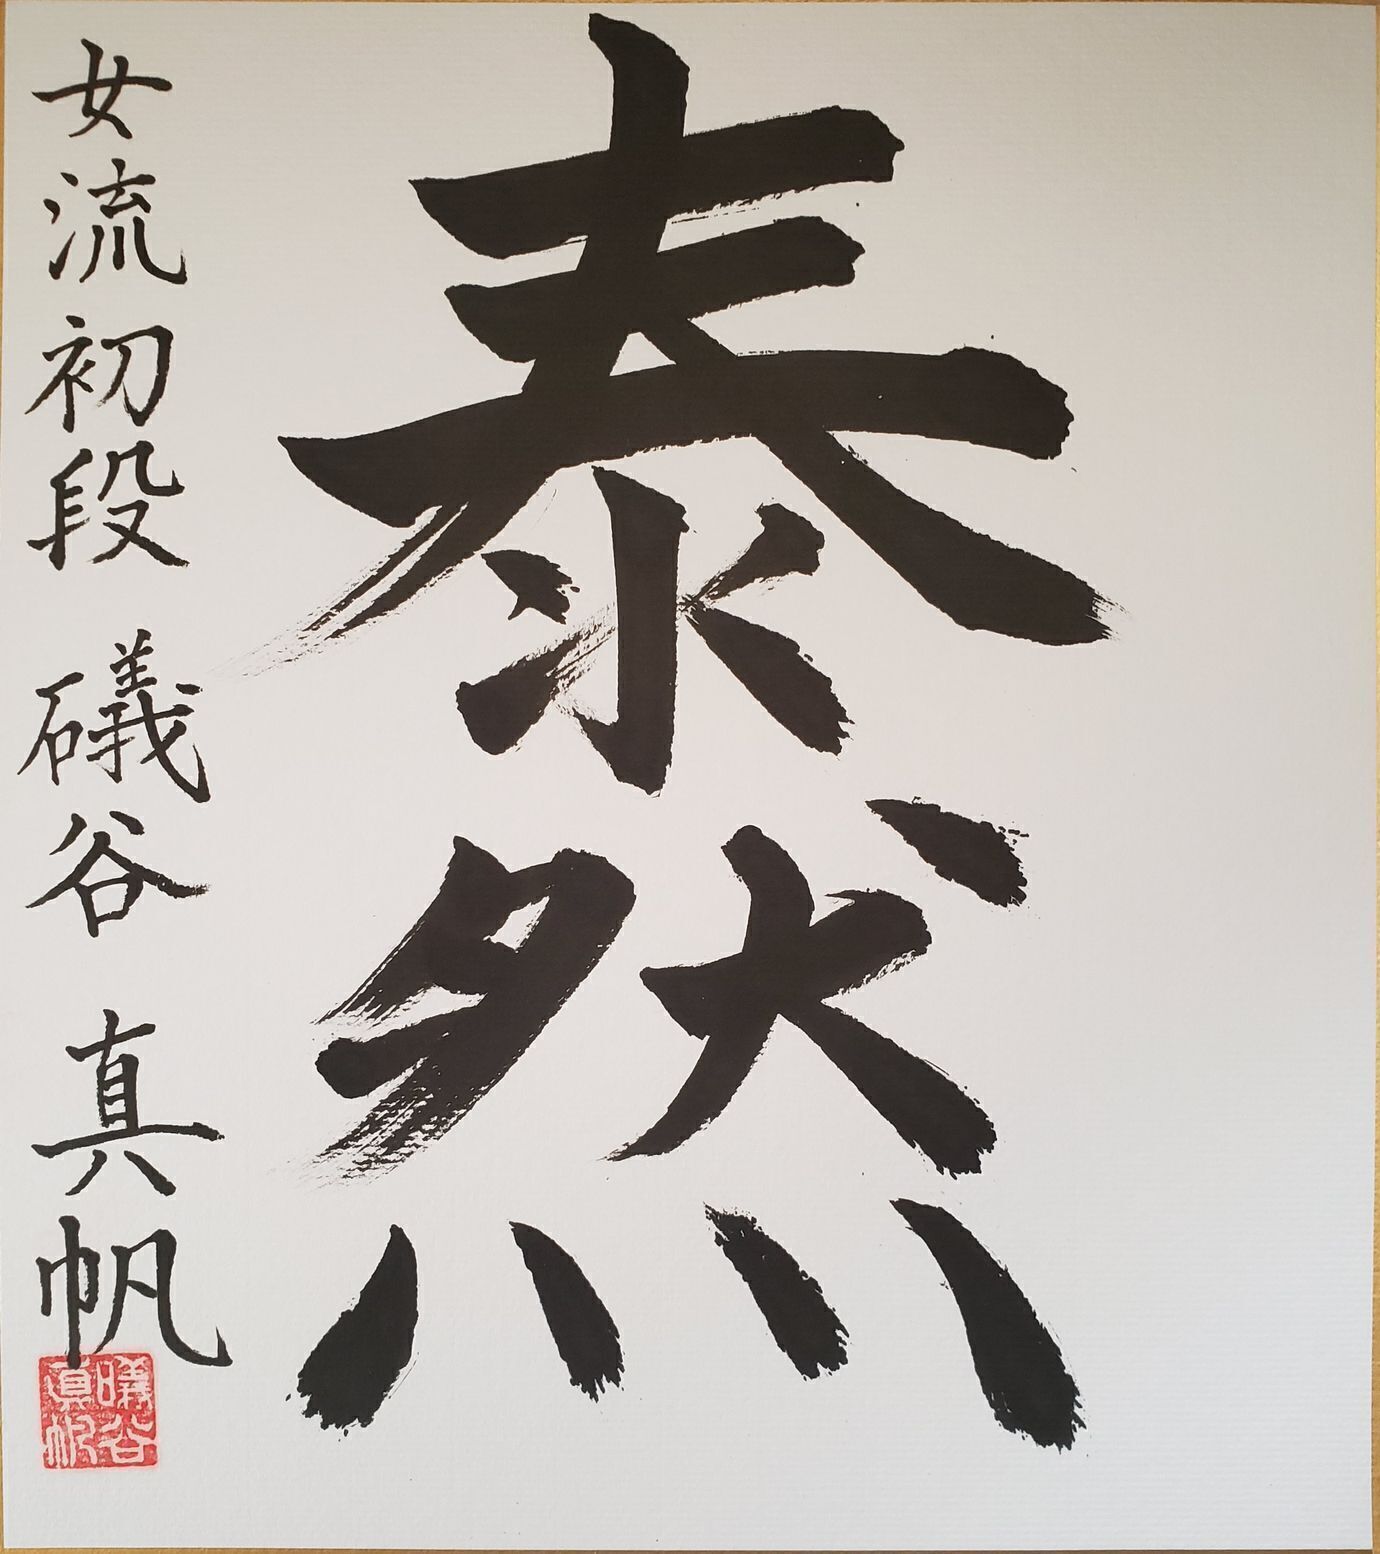 泰然
女流初段 礒谷 真帆
礒谷
眞帆